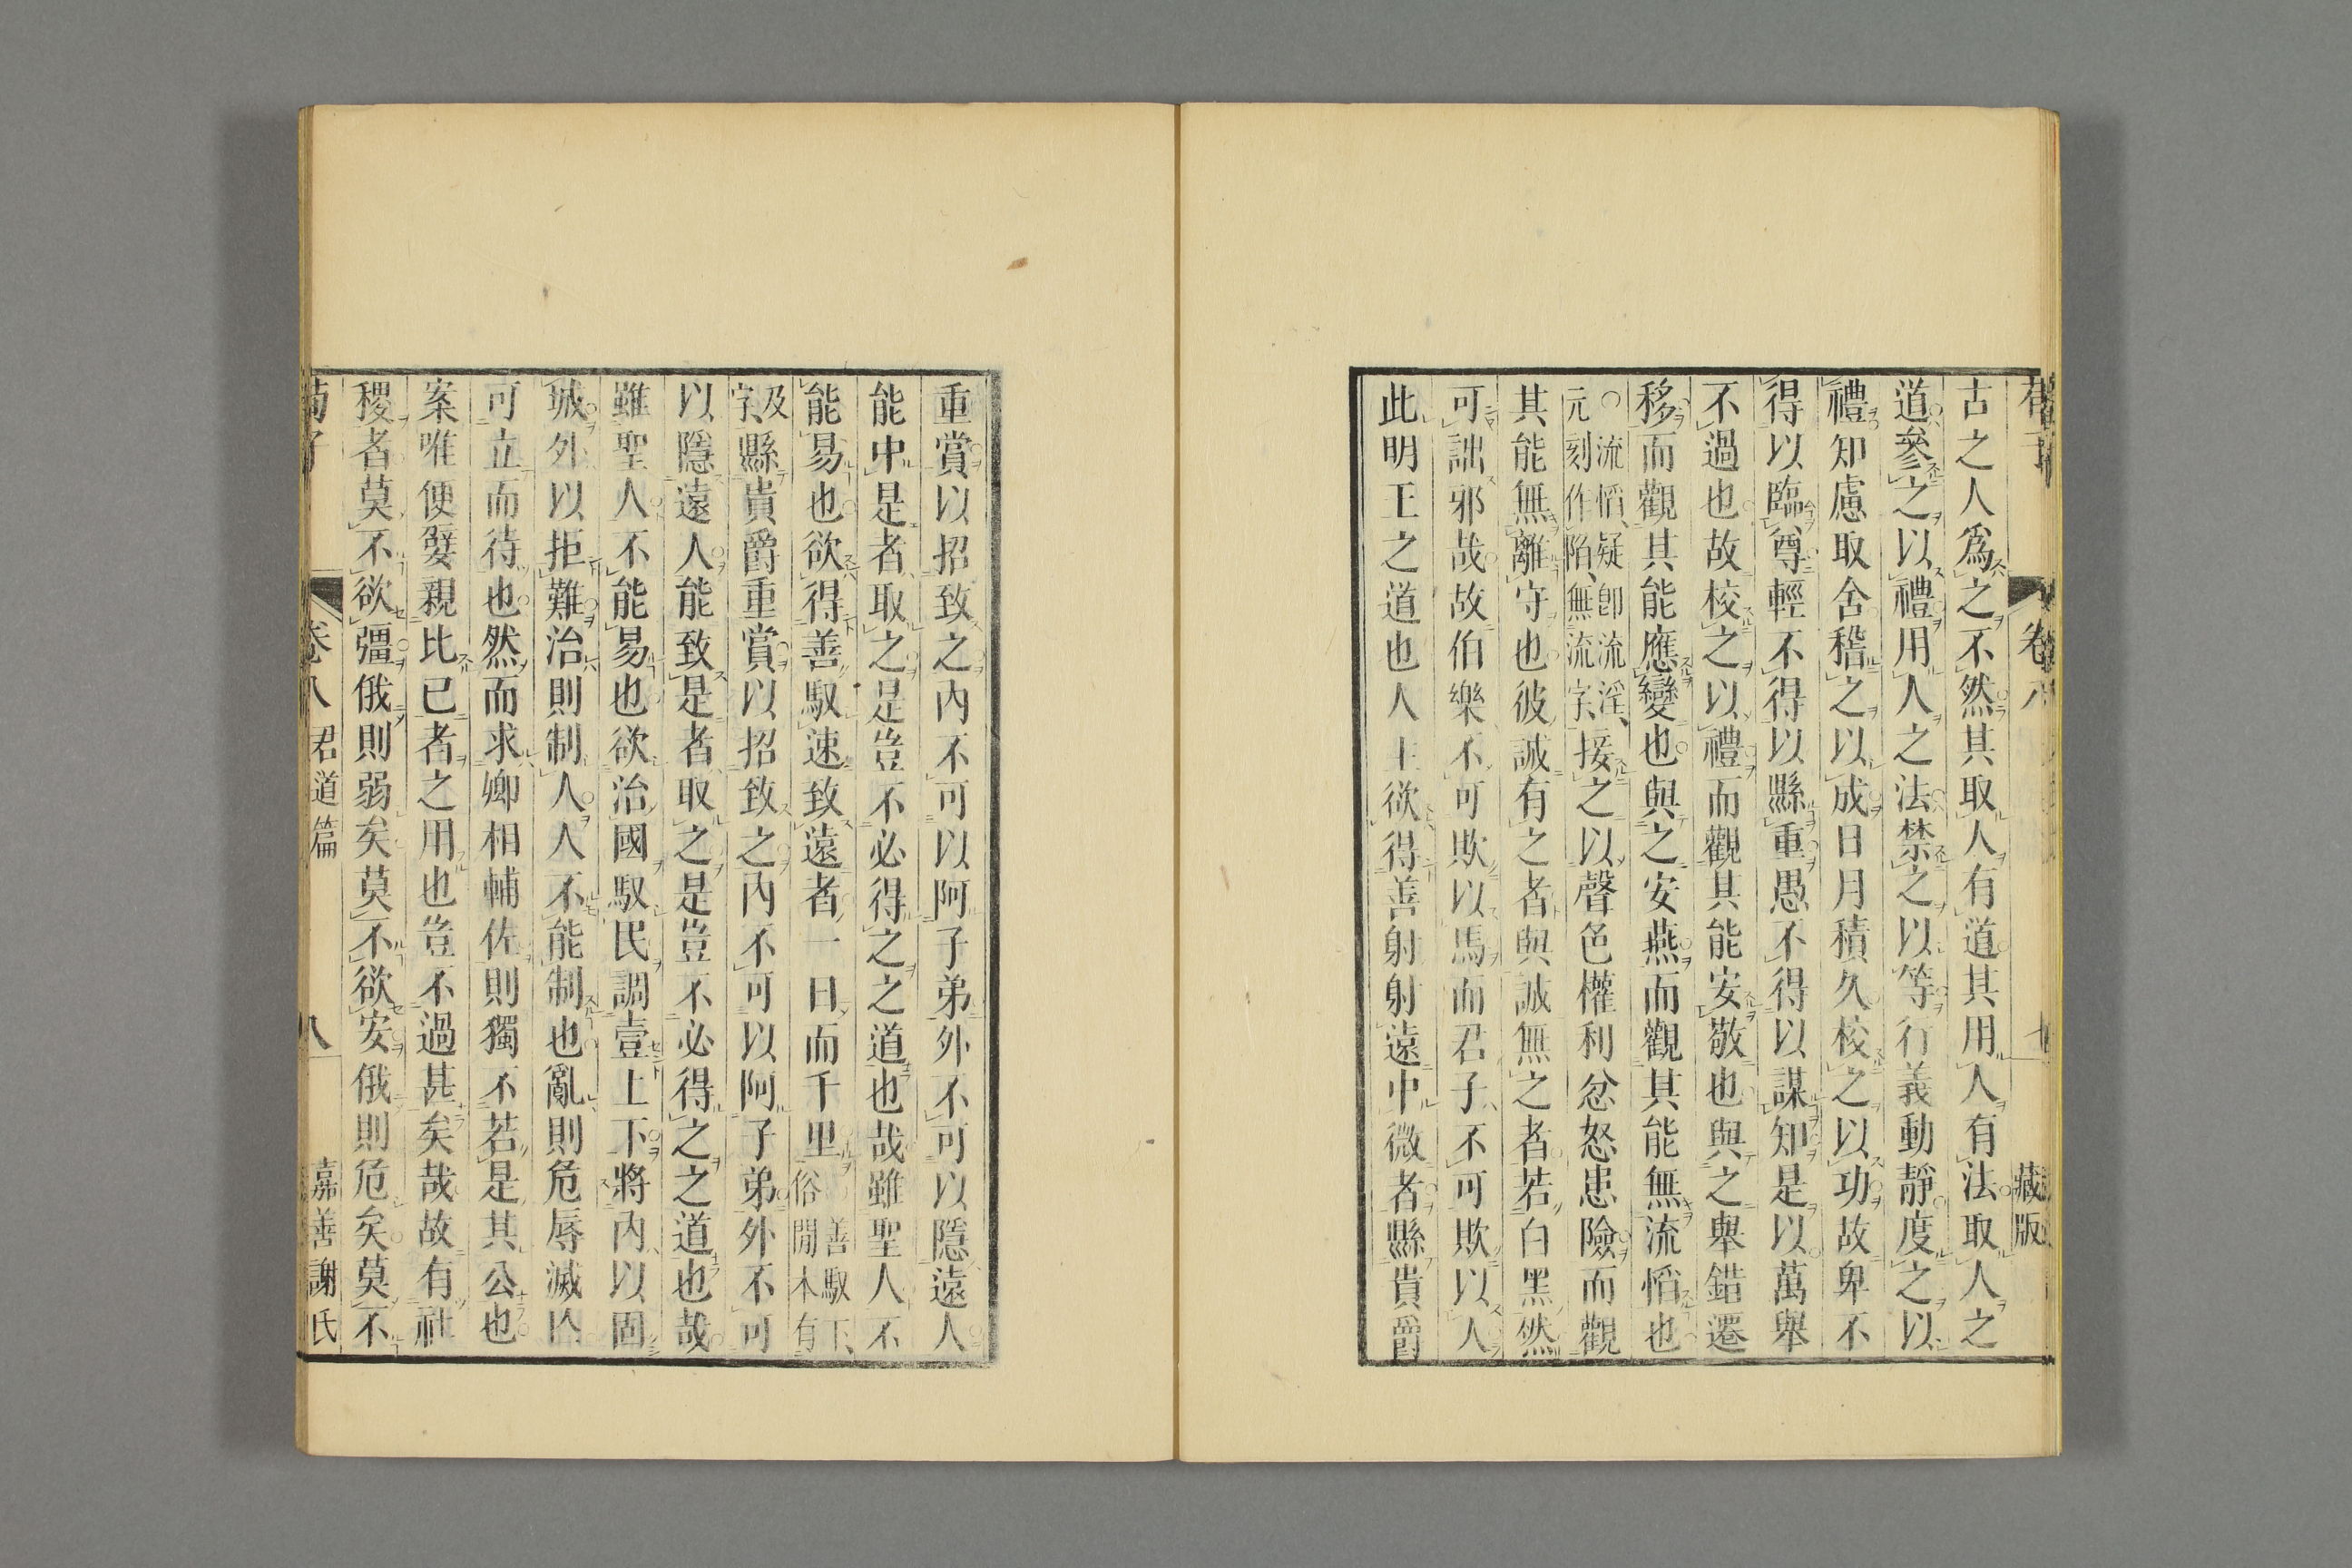 荀子
卷八
七
藏版
古之人爲之不然其取人有道其用人有法取人之
道參之以禮用人之法禁之以等行義動靜度之以
禮知慮取舍稽之以成日月積久校之以功故卑不
得以臨尊輕不得以縣重愚不得以謀知是以萬舉
不過也故校之以禮而觀其能安敬也與之舉錯遷
移而觀其能應變也與之安燕而觀其能無流慆也
○流慆、疑卽流淫、
元刻作陷、無流字、
接之以聲色權利忿怒患險而觀
其能無離守也彼誠有之者與誠無之者若白黑然
可詘邪哉故伯樂不可欺以馬而君子不可欺以人
此明王之道也人主欲得善射射遠中微者縣貴爵
重賞以招致之內不可以阿子弟外不可以隱遠人
能中是者取之是豈不必得之之道也哉雖聖人不
能易也欲得善馭速致遠者一日而千里
○善馭下、
俗閒本有
及
字、
縣貴爵重賞以招致之內不可以阿子弟外不可
以隱遠人能致是者取之是豈不必得之之道也哉
雖聖人不能易也欲治國馭民調壹上下將內以固
城外以拒難治則制人人不能制也亂則危辱滅亾
可立而待也然而求卿相輔佐則獨不若是其公也
案唯便嬖親比已者之用也豈不過甚矣哉故有社
稷者莫不欲彊俄則弱矣莫不欲安俄則危矣莫不
荀子
卷八
君道篇
八
嘉善謝氏